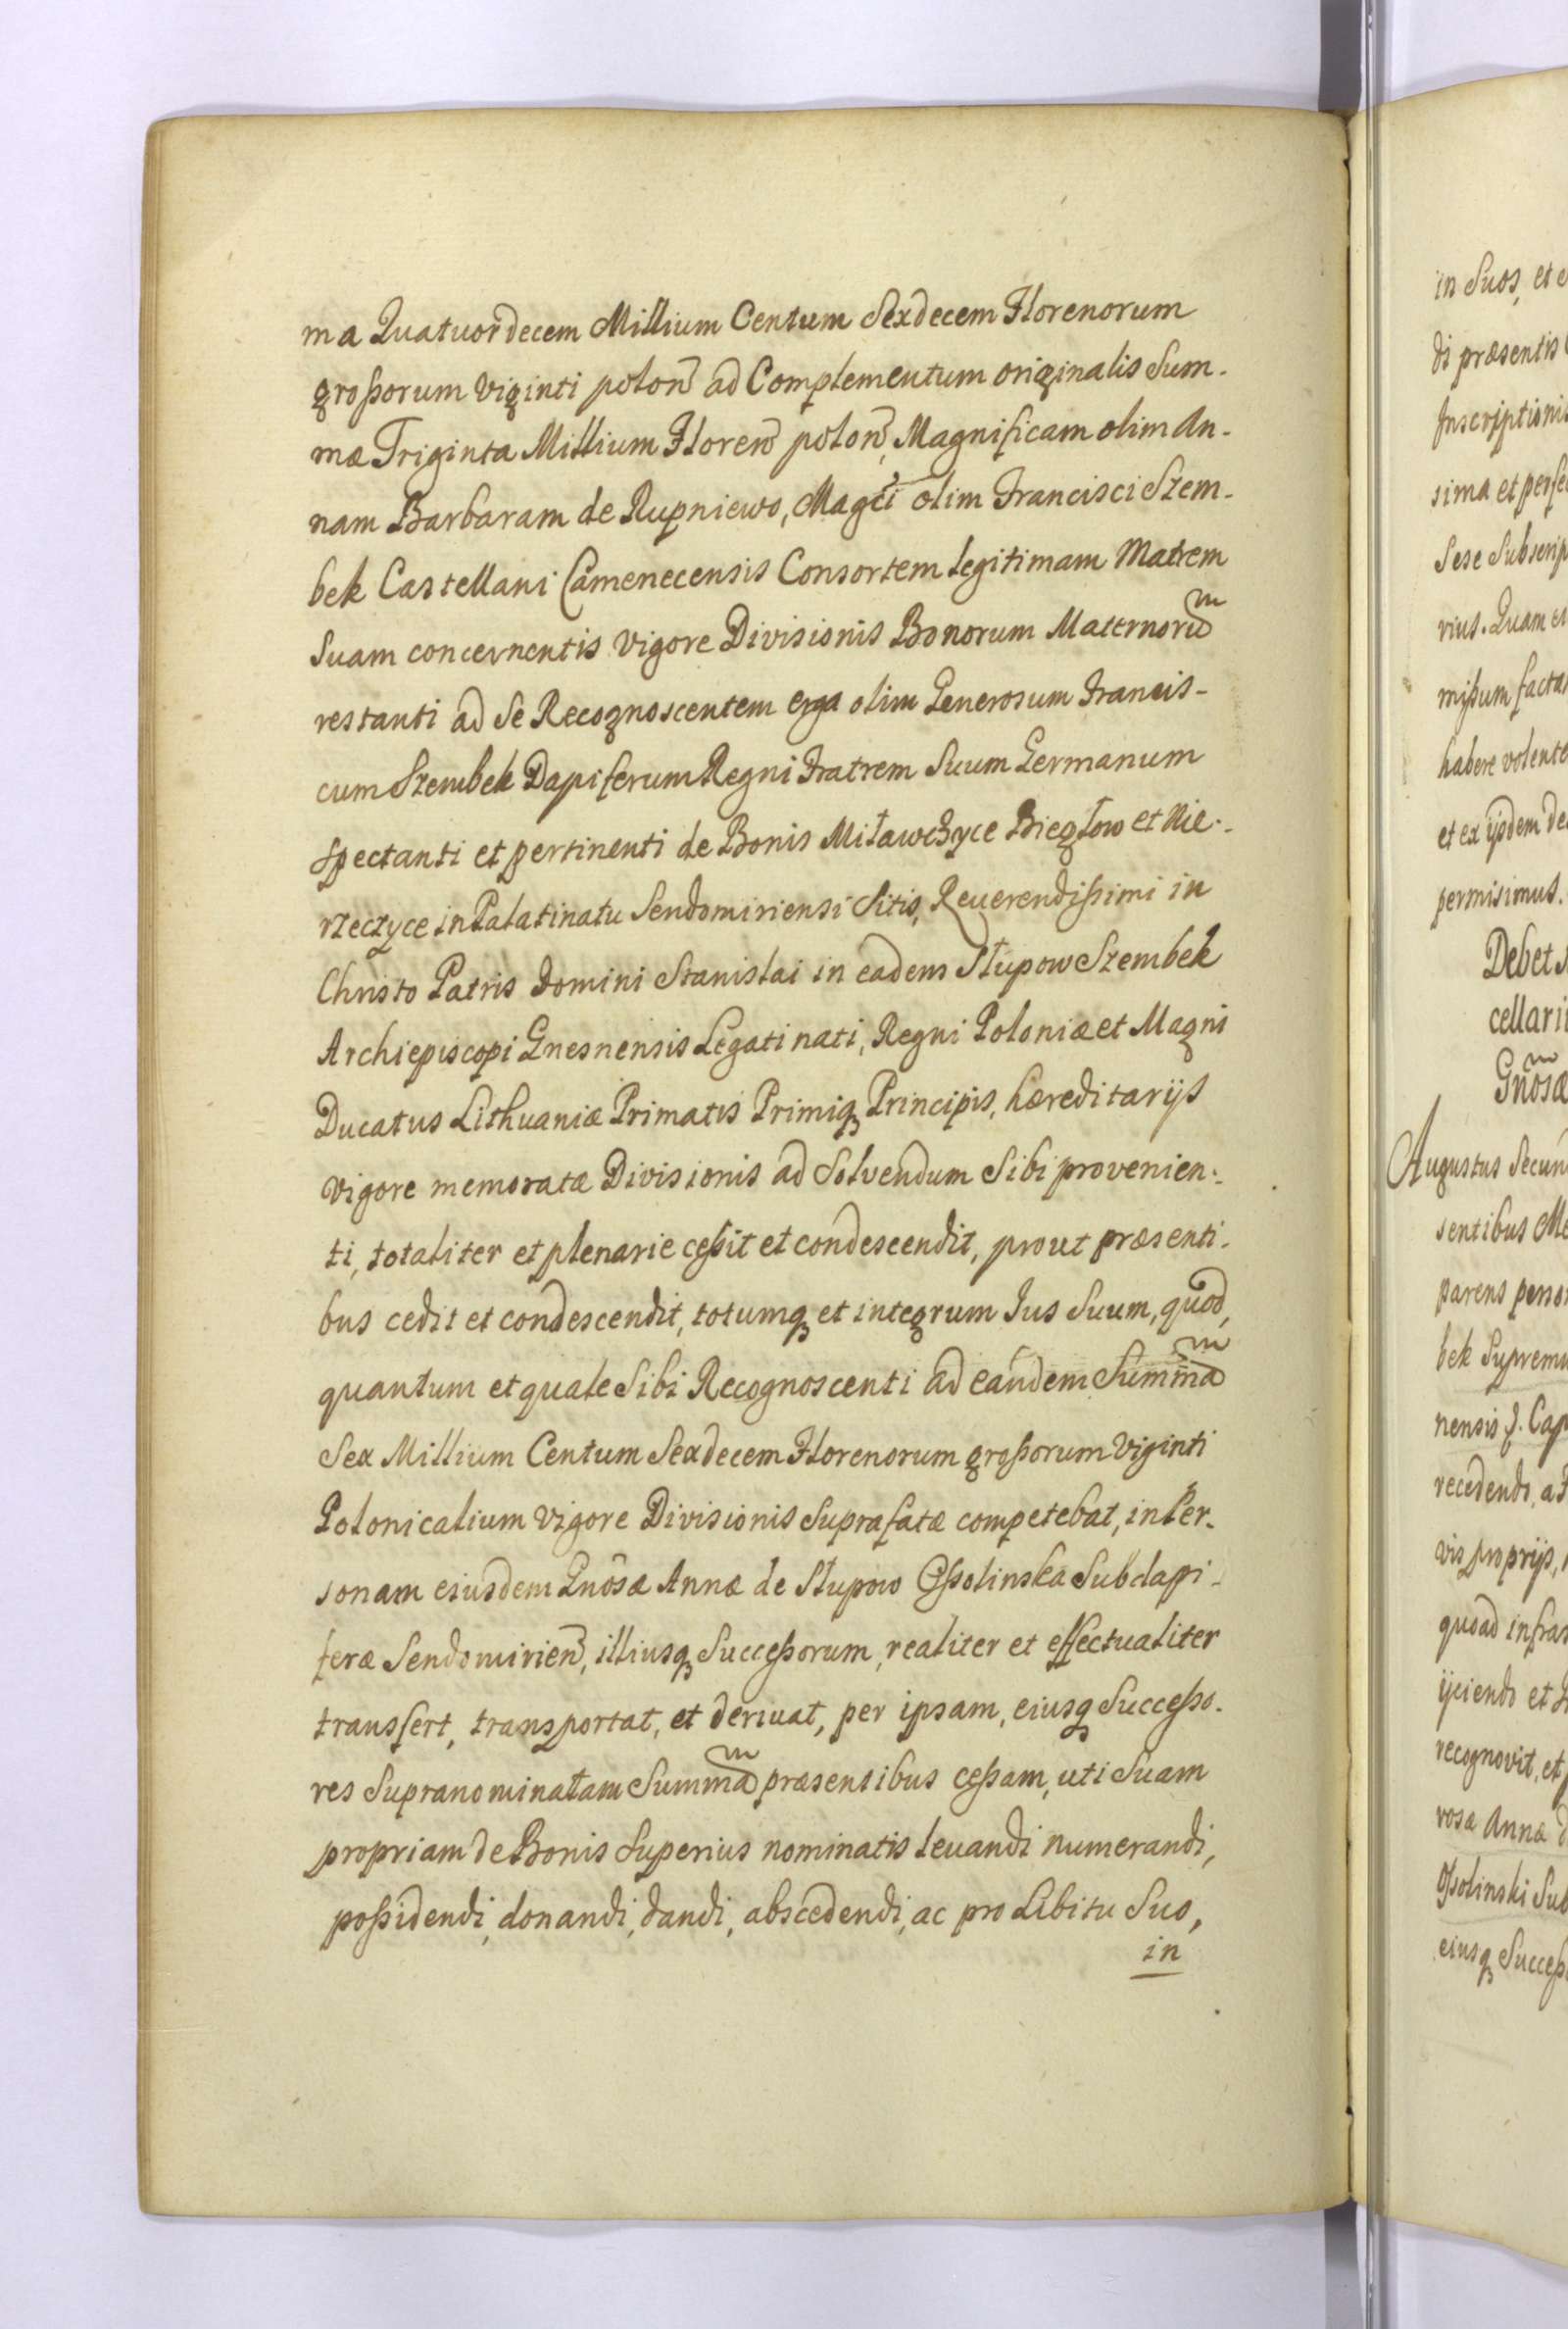 ma Quatuordecem Millium Centum Sexdecem Florenorum
großorum Viginti polon̄ ad Complementum originalis Sum-
mæ Triginta Millium Floren̄ polon̄, Magnificam olim An-
nam Barbaram de Rupniewo, Magci olim Francisci Szem-
bek Castellani Camenecensis Consortem legitimam Matrem
Suam concernentis vigore Divisionis Bonorum Maternorum̄
restanti ad Se Recognoscentem erga olim Generosum Francis-
cum Szembek Dapiferum Regni Fratrem Suum Germanum
Spectanti et pertinenti de Bonis Miławczyce Biegłow et Nie-
rzeczyce in Palatinatu Sendomiriensi Sitis, Reverendißimi in
Christo Patris Domini Stanislai in eadem Słupow Szembek
Archiepiscopi Gnesnensis Legati nati, Regni Poloniæ et Magni
Ducatus Lithuaniæ Primatis Primiq Principis, hæreditarijs
vigore memoratæ Divisionis ad Solvendum Sibi provenien-
ti, totaliter et plenarie ceßit et condescendit, prout præsenti-
bus cedit et condescendit, totumq et integrum Jus Suum, quod,
quantum et quale Sibi Recognoscenti ad eandem Summam
Sex Millium Centum Sexdecem Florenorum großorum Viginti
Polonicalium vigore Divisionis Suprafatæ competebat, in Per-
sonam eiusdem Gnōsæ Annæ de Słupow Oßolinska Subdapi-
feræ Sendomirien̄, illiusq Succeßorum, realiter et effectualiter
transfert, transportat, et derivat, per ipsam, eiusq Succeßo-
res Supranominatam Summam præsentibus ceßam, uti Suam
propriam de Bonis Superius nominatis levandi numerandi,
poßidendi, donandi, dandi, abscedendi, ac pro Libitu Suo,
in
in Suos, et
di præsentis
Inscriptionis
sima et perfe
Sese Subscrip
rius. Quam et
mißum facta
habere volente
et ex ijsdem de
permisimus.
Debet
cellari
Gnōsæ
Augustus Secun
sentibus
parens person
bek Supremu
nensis
recedendo, a
vis proprijs,
quoad infras
ijciendo et
recognovit, et
rosæ Annæ
Oßolinski Sub
eiusq Succeß